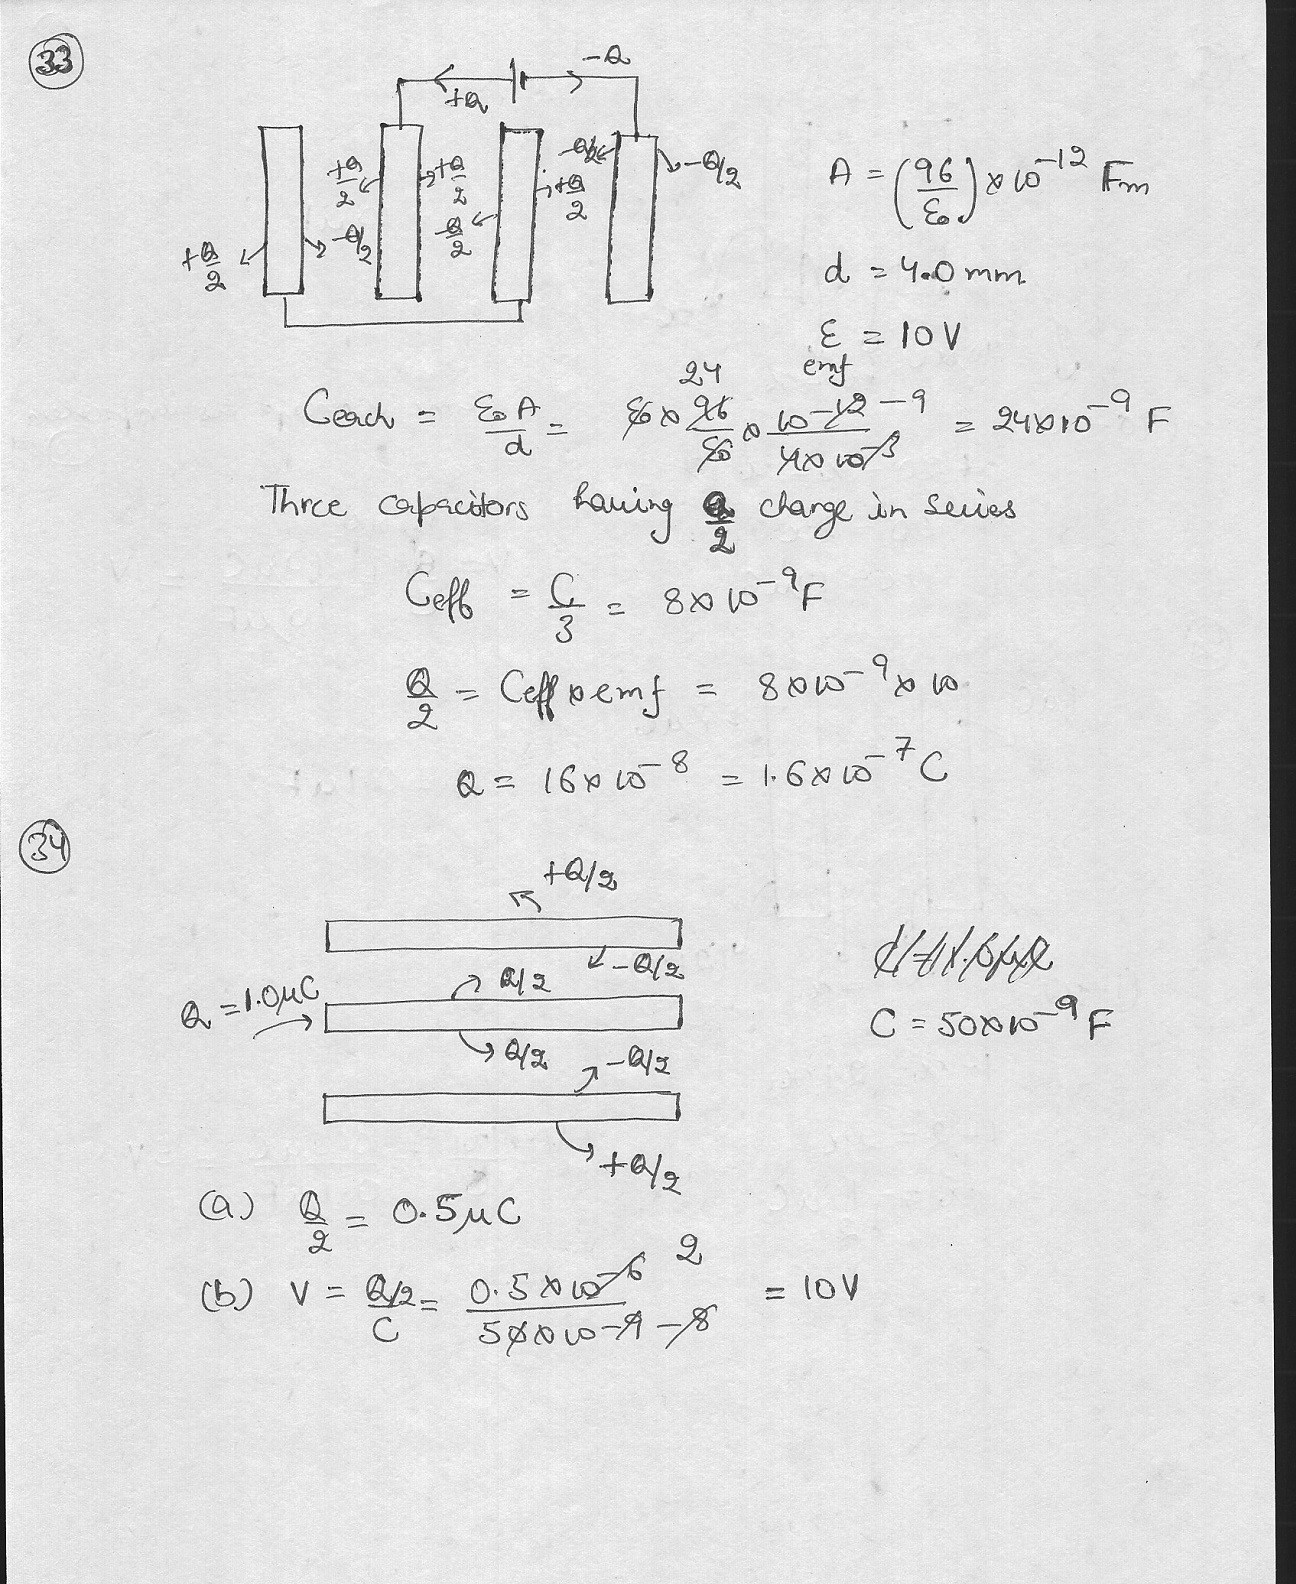 33
-Q
+Q
+Q/2 +Q/2 -Q/2 -Q/2
-Q/2 +Q/2
+Q/2 -Q/2
A = (96/ε₀) × 10⁻¹² Fm
d = 4.0 mm
ε = 10V
emf
Ceach = ε₀A/d = ε₀ × 96/ε₀ × 10⁻¹²/4×10⁻³ = 24×10⁻⁹ F
24 -9
Three capacitors having Q/2 charge in series
Ceff = C/3 = 8×10⁻⁹F
Q/2 = Ceff × emf = 8×10⁻⁹ × 10
Q = 16×10⁻⁸ = 1.6×10⁻⁷ C
34
+Q/2
-Q/2
Q = 1.0μC Q/2
C = 50×10⁻⁹ F
Q/2 -Q/2
+Q/2
(a) Q/2 = 0.5μC
(b) V = Q/2/C = 0.5×10⁻⁶/50×10⁻⁹ = 10V
2
-8